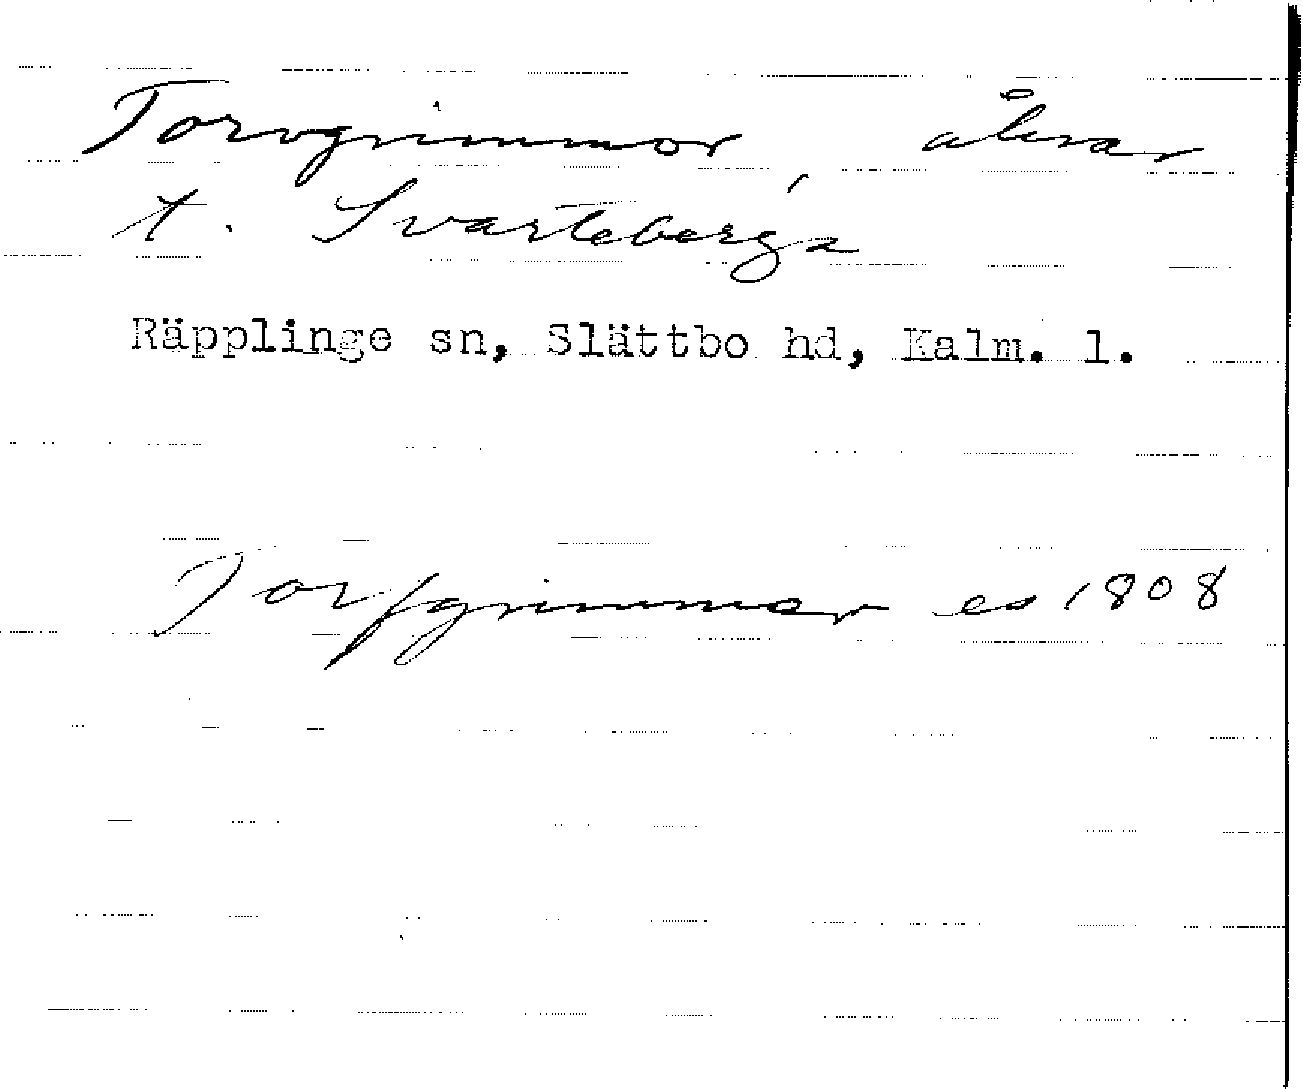 Torvgrimmor, åkrar
t. Svarteberga
Räpplinge sn, Slättbo hd, Kalm. l.
Torfgrimmor es 1808